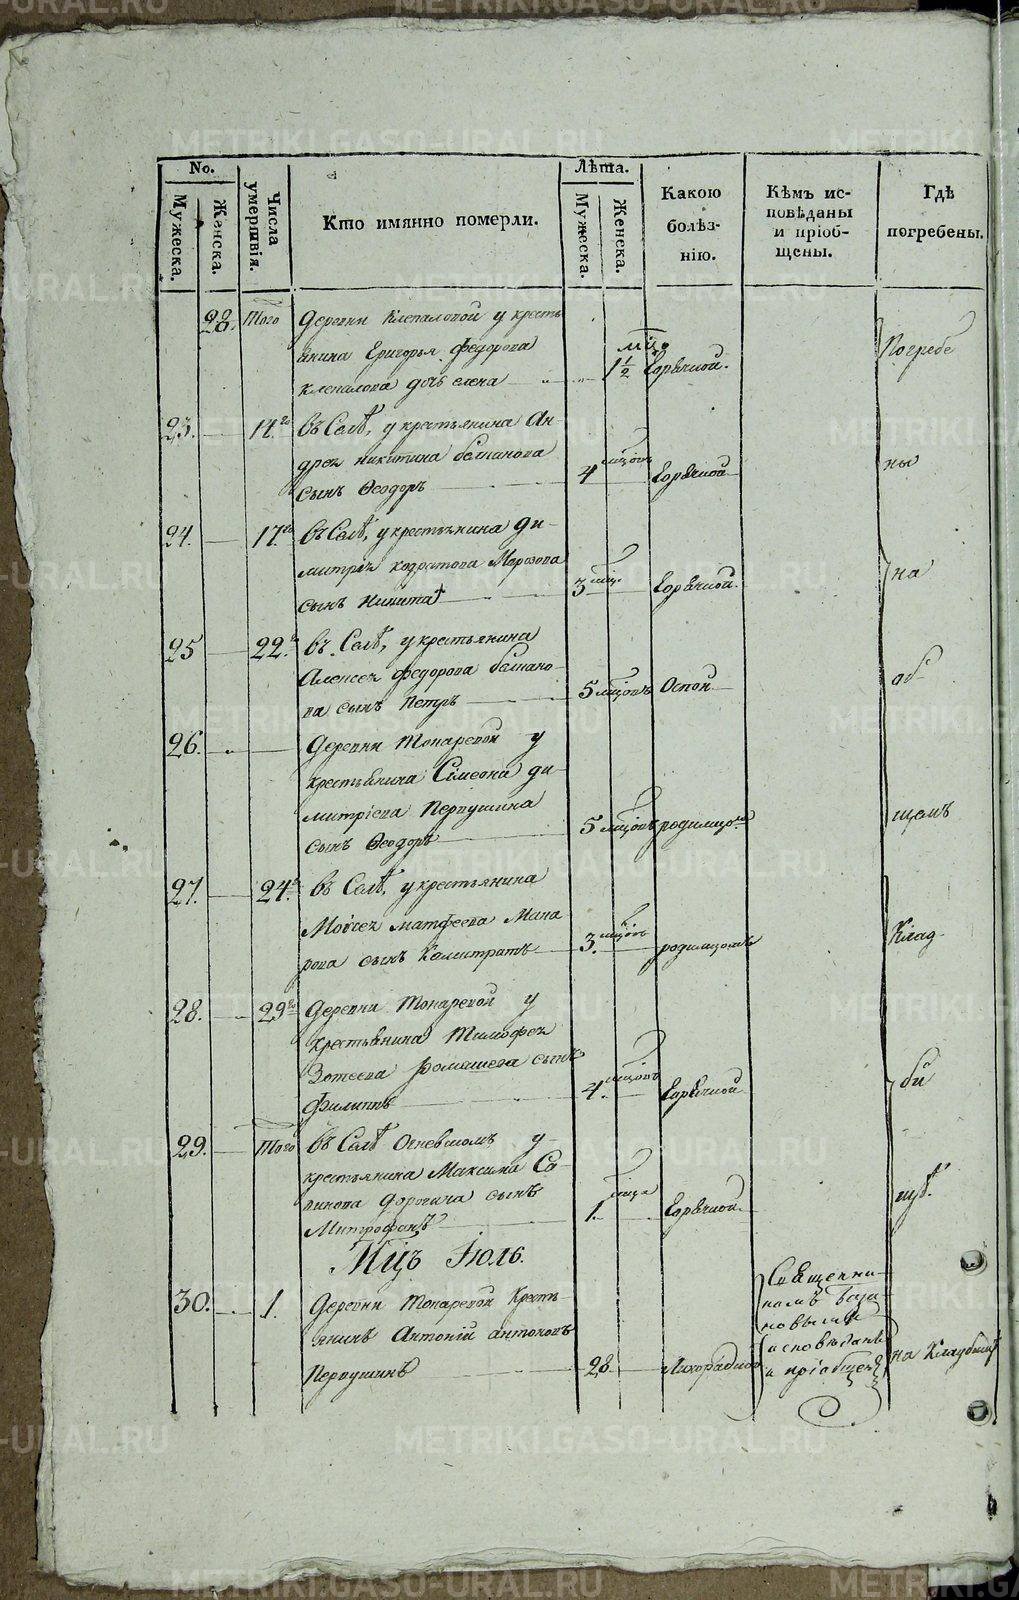 No.
Мужеска.
Женска.
Числа умершвія.
Кто имянно померли.
Лѣта.
Мужеска.
Женска.
Какою болѣз-
нію.
Кѣмъ ис-
повѣданы
и пріоб-
щены.
Гдѣ
погребены.
28. Того Деревни Клепаловой у кресть
янина Григорья Федорова мце
Клепалова дочь елена 1 1/2 Горячкой. Погребе
23. 14.го въ Селѣ, у крестьянина Ан
дрея никитина
сынъ Ѳеодоръ 4 мцовъ Горячкой ны
24. 17.го въ Селѣ, у крестьянина ди-
митрія кодратова Морозова
сынъ Никита 3 мце Горячкой. на
25 22. въ Селѣ, у крестьянина
Алексея федорова
ва сынъ Петръ 5 мцовъ Оспой об
26. Деревни Токаревой у
крестьянина Сімеона ди-
митріева Первушина
сынъ Ѳеодоръ 5 мцовъ родимцомъ щемъ
27. 24. въ Селѣ, у крестьянина
Моисея матфеева Мака
рова сынъ Калистратъ 3. мцовъ родимцомъ Клад-
28. 29.го Деревни Токаревой у
крестьянина Тимофея
Зотеева сынъ
Филиппъ 4. мцовъ Горячкой би
29. Того въ Селѣ Огневскомъ у
крестьянина Максима Са-
винова сынъ
Митрофанъ 1. мца Горячкой. щѣ.
Мцъ Іюль.
30. 1. Деревни Токаревой Кресть-
янинъ Антоній антоновъ
Первушинъ 28. Лихорадкою
Священни-
комъ
исповѣданъ
и пріобщенъ
на Кладбищѣ
METRIKI.GASO-URAL.RU